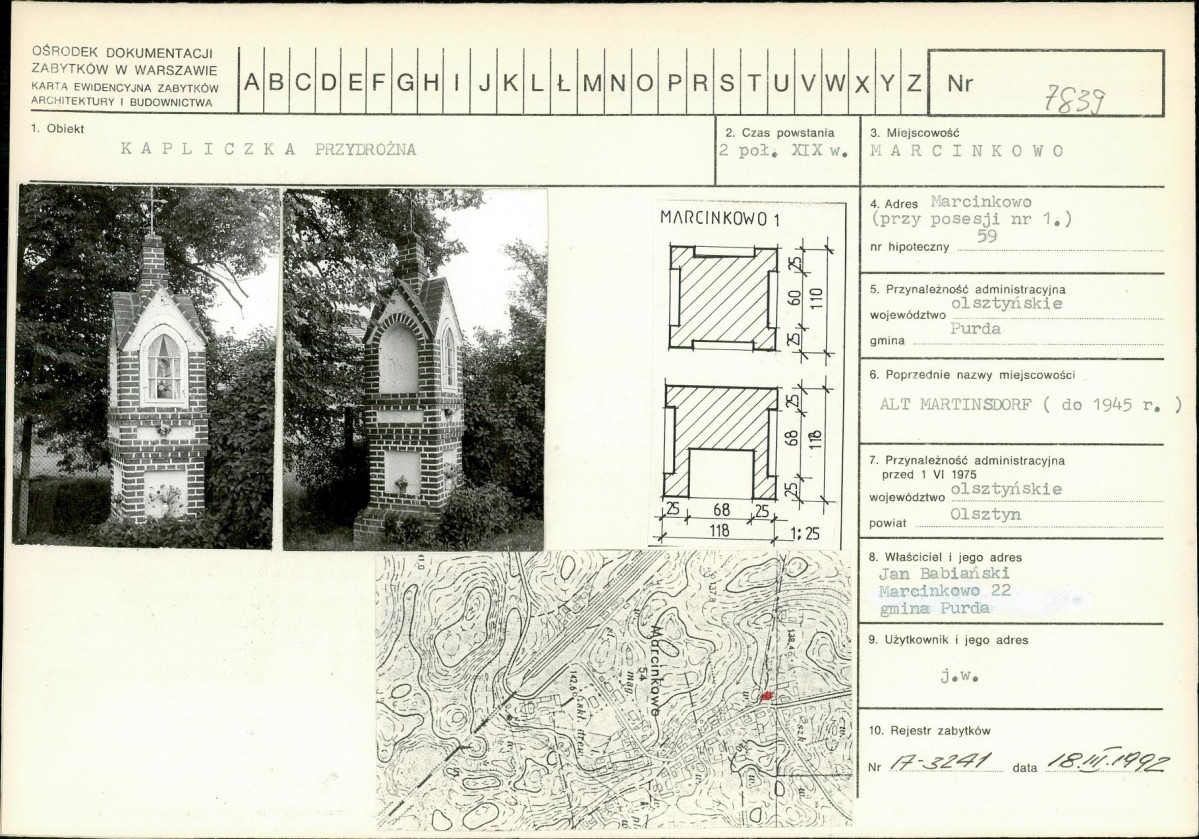 OŚRODEK DOKUMENTACJI
ZABYTKÓW W WARSZAWIE
KARTA EWIDENCYJNA ZABYTKÓW
ARCHITEKTURY I BUDOWNICTWA
A B C D E F G H I J K L Ł M N O P R S T U V W X Y Z
Nr 7839
1. Obiekt
KAPLICZKA PRZYDROŻNA
2. Czas powstania
2 poł. XIX w.
3. Miejscowość
MARCINKOWO
4. Adres Marcinkowo
(przy posesji nr 1.)
nr hipoteczny 59
5. Przynależność administracyjna
województwo olsztyńskie
gmina Purda
6. Poprzednie nazwy miejscowości
ALT MARTINSDORF ( do 1945 r. )
7. Przynależność administracyjna
przed 1 VI 1975
województwo olsztyńskie
powiat Olsztyn
8. Właściciel i jego adres
Jan Babiański
Marcinkowo 22
gmina Purda
9. Użytkownik i jego adres
j.w.
10. Rejestr zabytków
Nr A-3241 data 18.III.1992
MARCINKOWO 1
25
60
110
25
25
68
118
25
25 68 25
118
1:25
Marcinkowo
54
mag.
142,6
skł. drew.
138,4
szk.